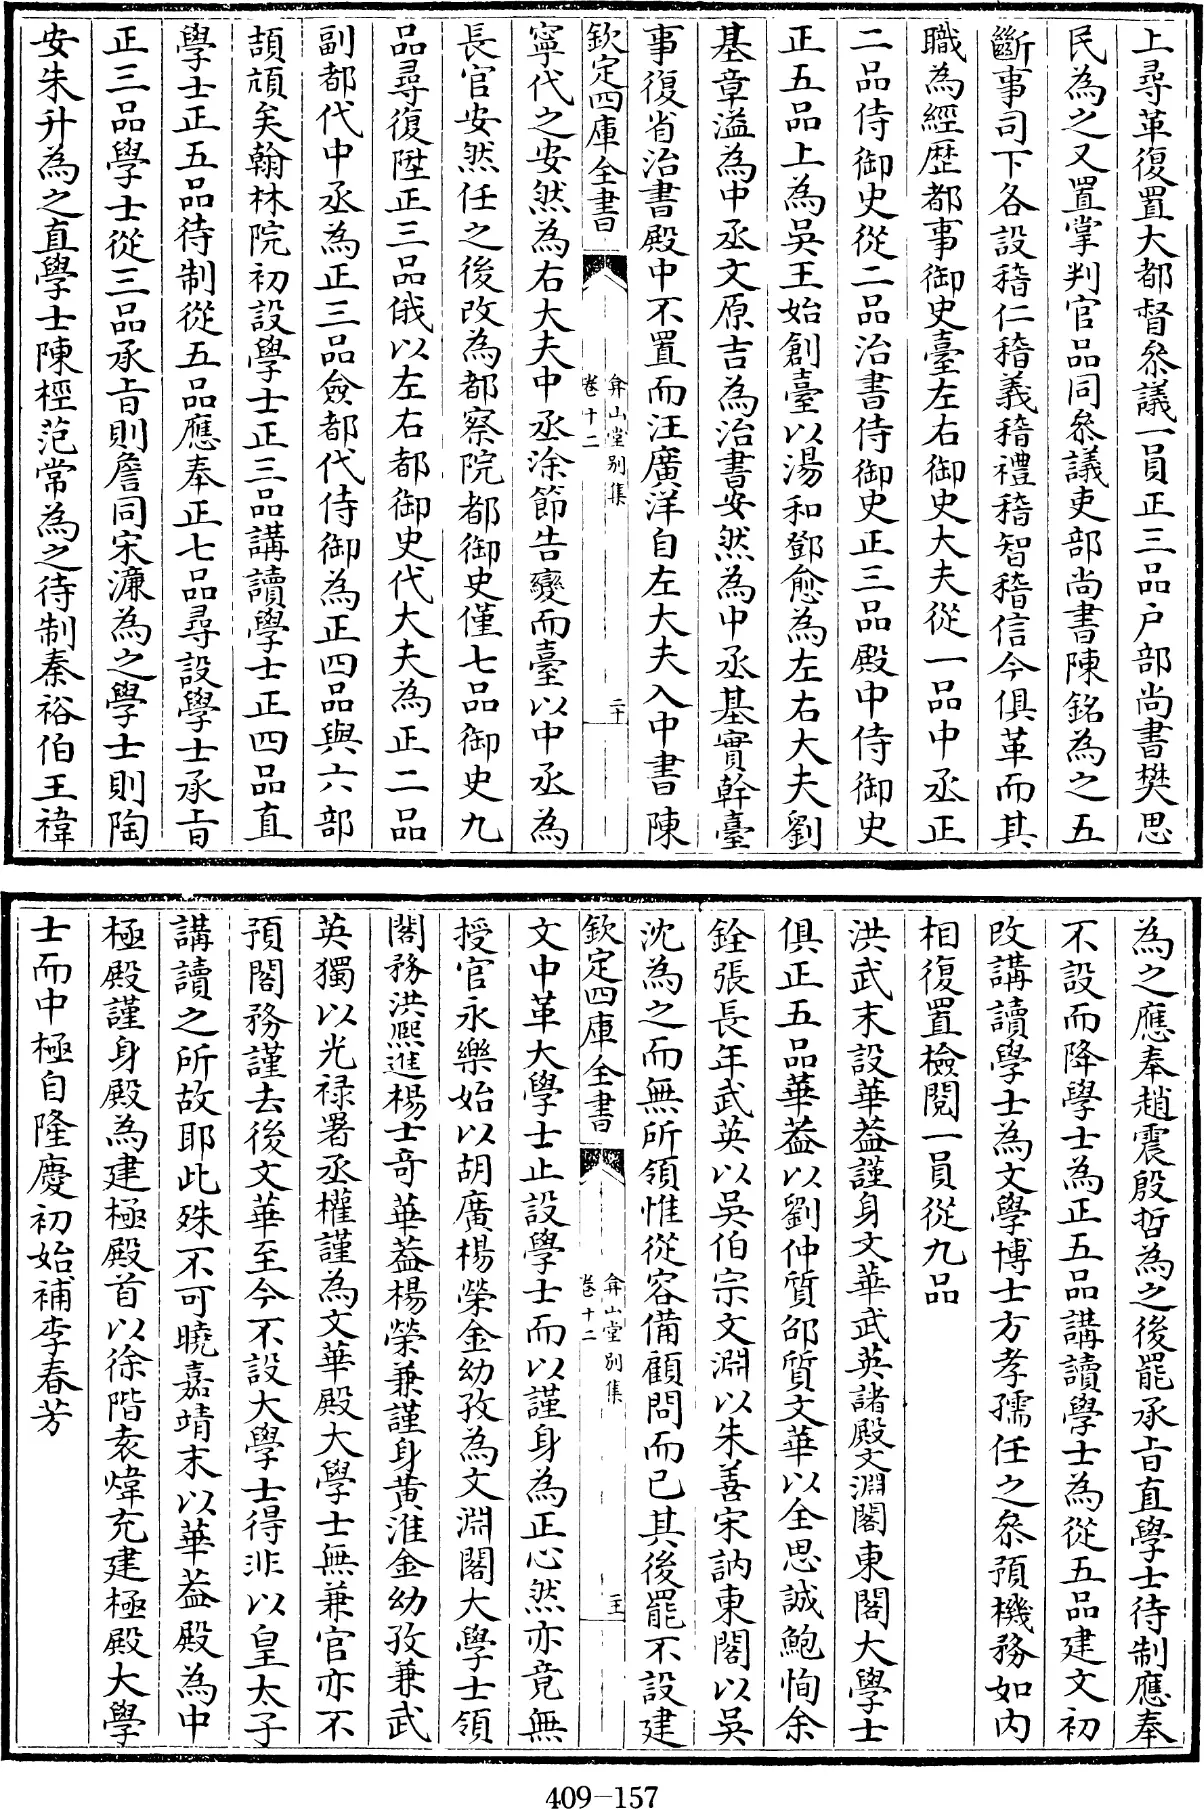 上尋革復置大都督叅議一員正三品户部尚書樊思
民為之又置掌判官品同叅議吏部尚書陳銘為之五
斷事司下各設稽仁稽義稽禮稽智稽信今俱革而其
職為經歴都事御史臺左右御史大夫從一品中丞正
二品侍御史從二品治書侍御史正三品殿中侍御史
正五品上為吳王始創臺以湯和鄧愈為左右大夫劉
基章溢為中丞文原吉為治書安然為中丞基實幹臺
事復省治書殿中不置而汪廣洋自左大夫入中書陳
欽定四庫全書
弇山堂别集
卷十二
二十
寧代之安然為右大夫中丞涂節告變而臺以中丞為
長官安然任之後改為都察院都御史僅七品御史九
品尋復陞正三品俄以左右都御史代大夫為正二品
副都代中丞為正三品僉都代侍御為正四品與六部
頡頏矣翰林院初設學士正三品講讀學士正四品直
學士正五品待制從五品應奉正七品尋設學士承㫖
正三品學士從三品承㫖則詹同宋濂為之學士則陶
安朱升為之直學士陳桱范常為之待制秦裕伯王褘
為之應奉趙震殷哲為之後罷承㫖直學士待制應奉
不設而降學士為正五品講讀學士為從五品建文初
改講讀學士為文學博士方孝孺任之叅預機務如内
相復置檢閲一員從九品
洪武末設華葢謹身文華武英諸殿文淵閣東閣大學士
俱正五品華葢以劉仲質邵質文華以全思誠鮑恂余
銓張長年武英以吳伯宗文淵以朱善宋訥東閣以吳
沈為之而無所領惟從容備顧問而已其後罷不設建
欽定四庫全書
弇山堂别集
卷十二
二十一
文中革大學士止設學士而以謹身為正心然亦竟無
授官永樂始以胡廣楊榮金幼孜為文淵閣大學士領
閣務洪熙進楊士竒華葢楊榮兼謹身黄淮金幼孜兼武
英獨以光禄署丞權謹為文華殿大學士無兼官亦不
預閣務謹去後文華至今不設大學士得非以皇太子
講讀之所故耶此殊不可曉嘉靖末以華葢殿為中
極殿謹身殿為建極殿首以徐階袁煒充建極殿大學
士而中極自隆慶初始補李春芳
409-157